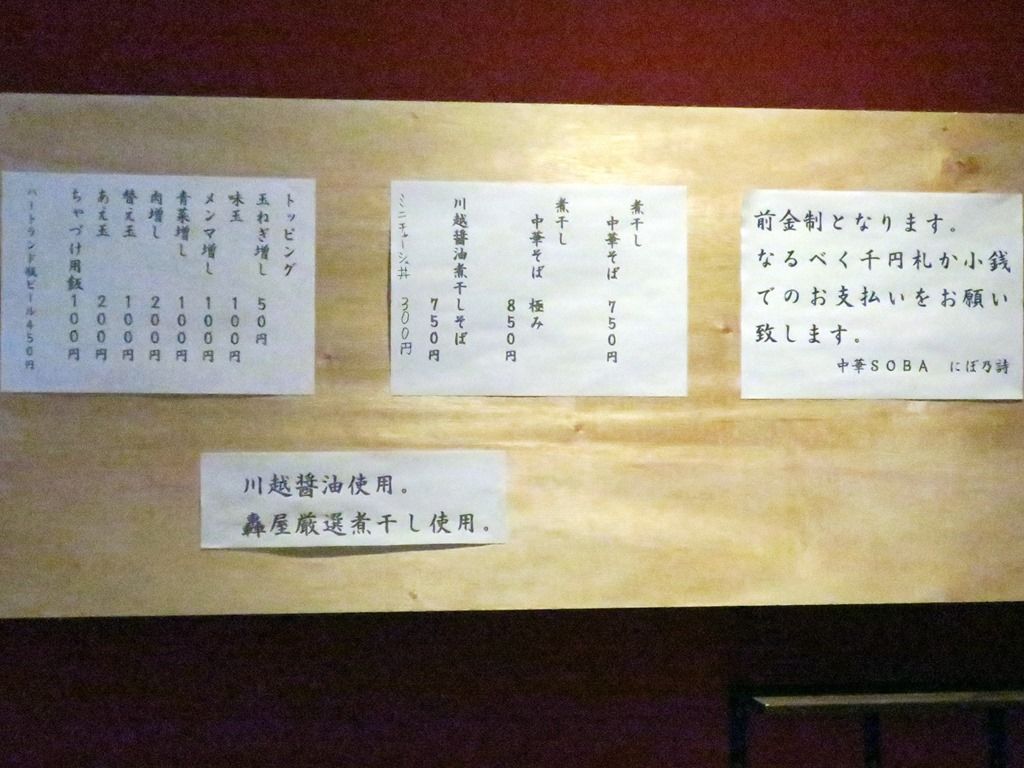 前金制となります。
なるべく千円札か小銭
でのお支払いをお願い
致します。
中華SOBA にぼ乃詩
煮干し
中華そば 750円
煮干し
中華そば 極み
850円
川越醤油煮干しそば
750円
ミニチャーシュ丼 300円
トッピング
玉ねぎ増し 50円
味玉 100円
メンマ増し 100円
青菜増し 100円
肉増し 200円
替え玉 100円
あえ玉 200円
ちゃづけ用飯 100円
ハートランド瓶ビール450円
川越醤油使用。
轟屋厳選煮干し使用。